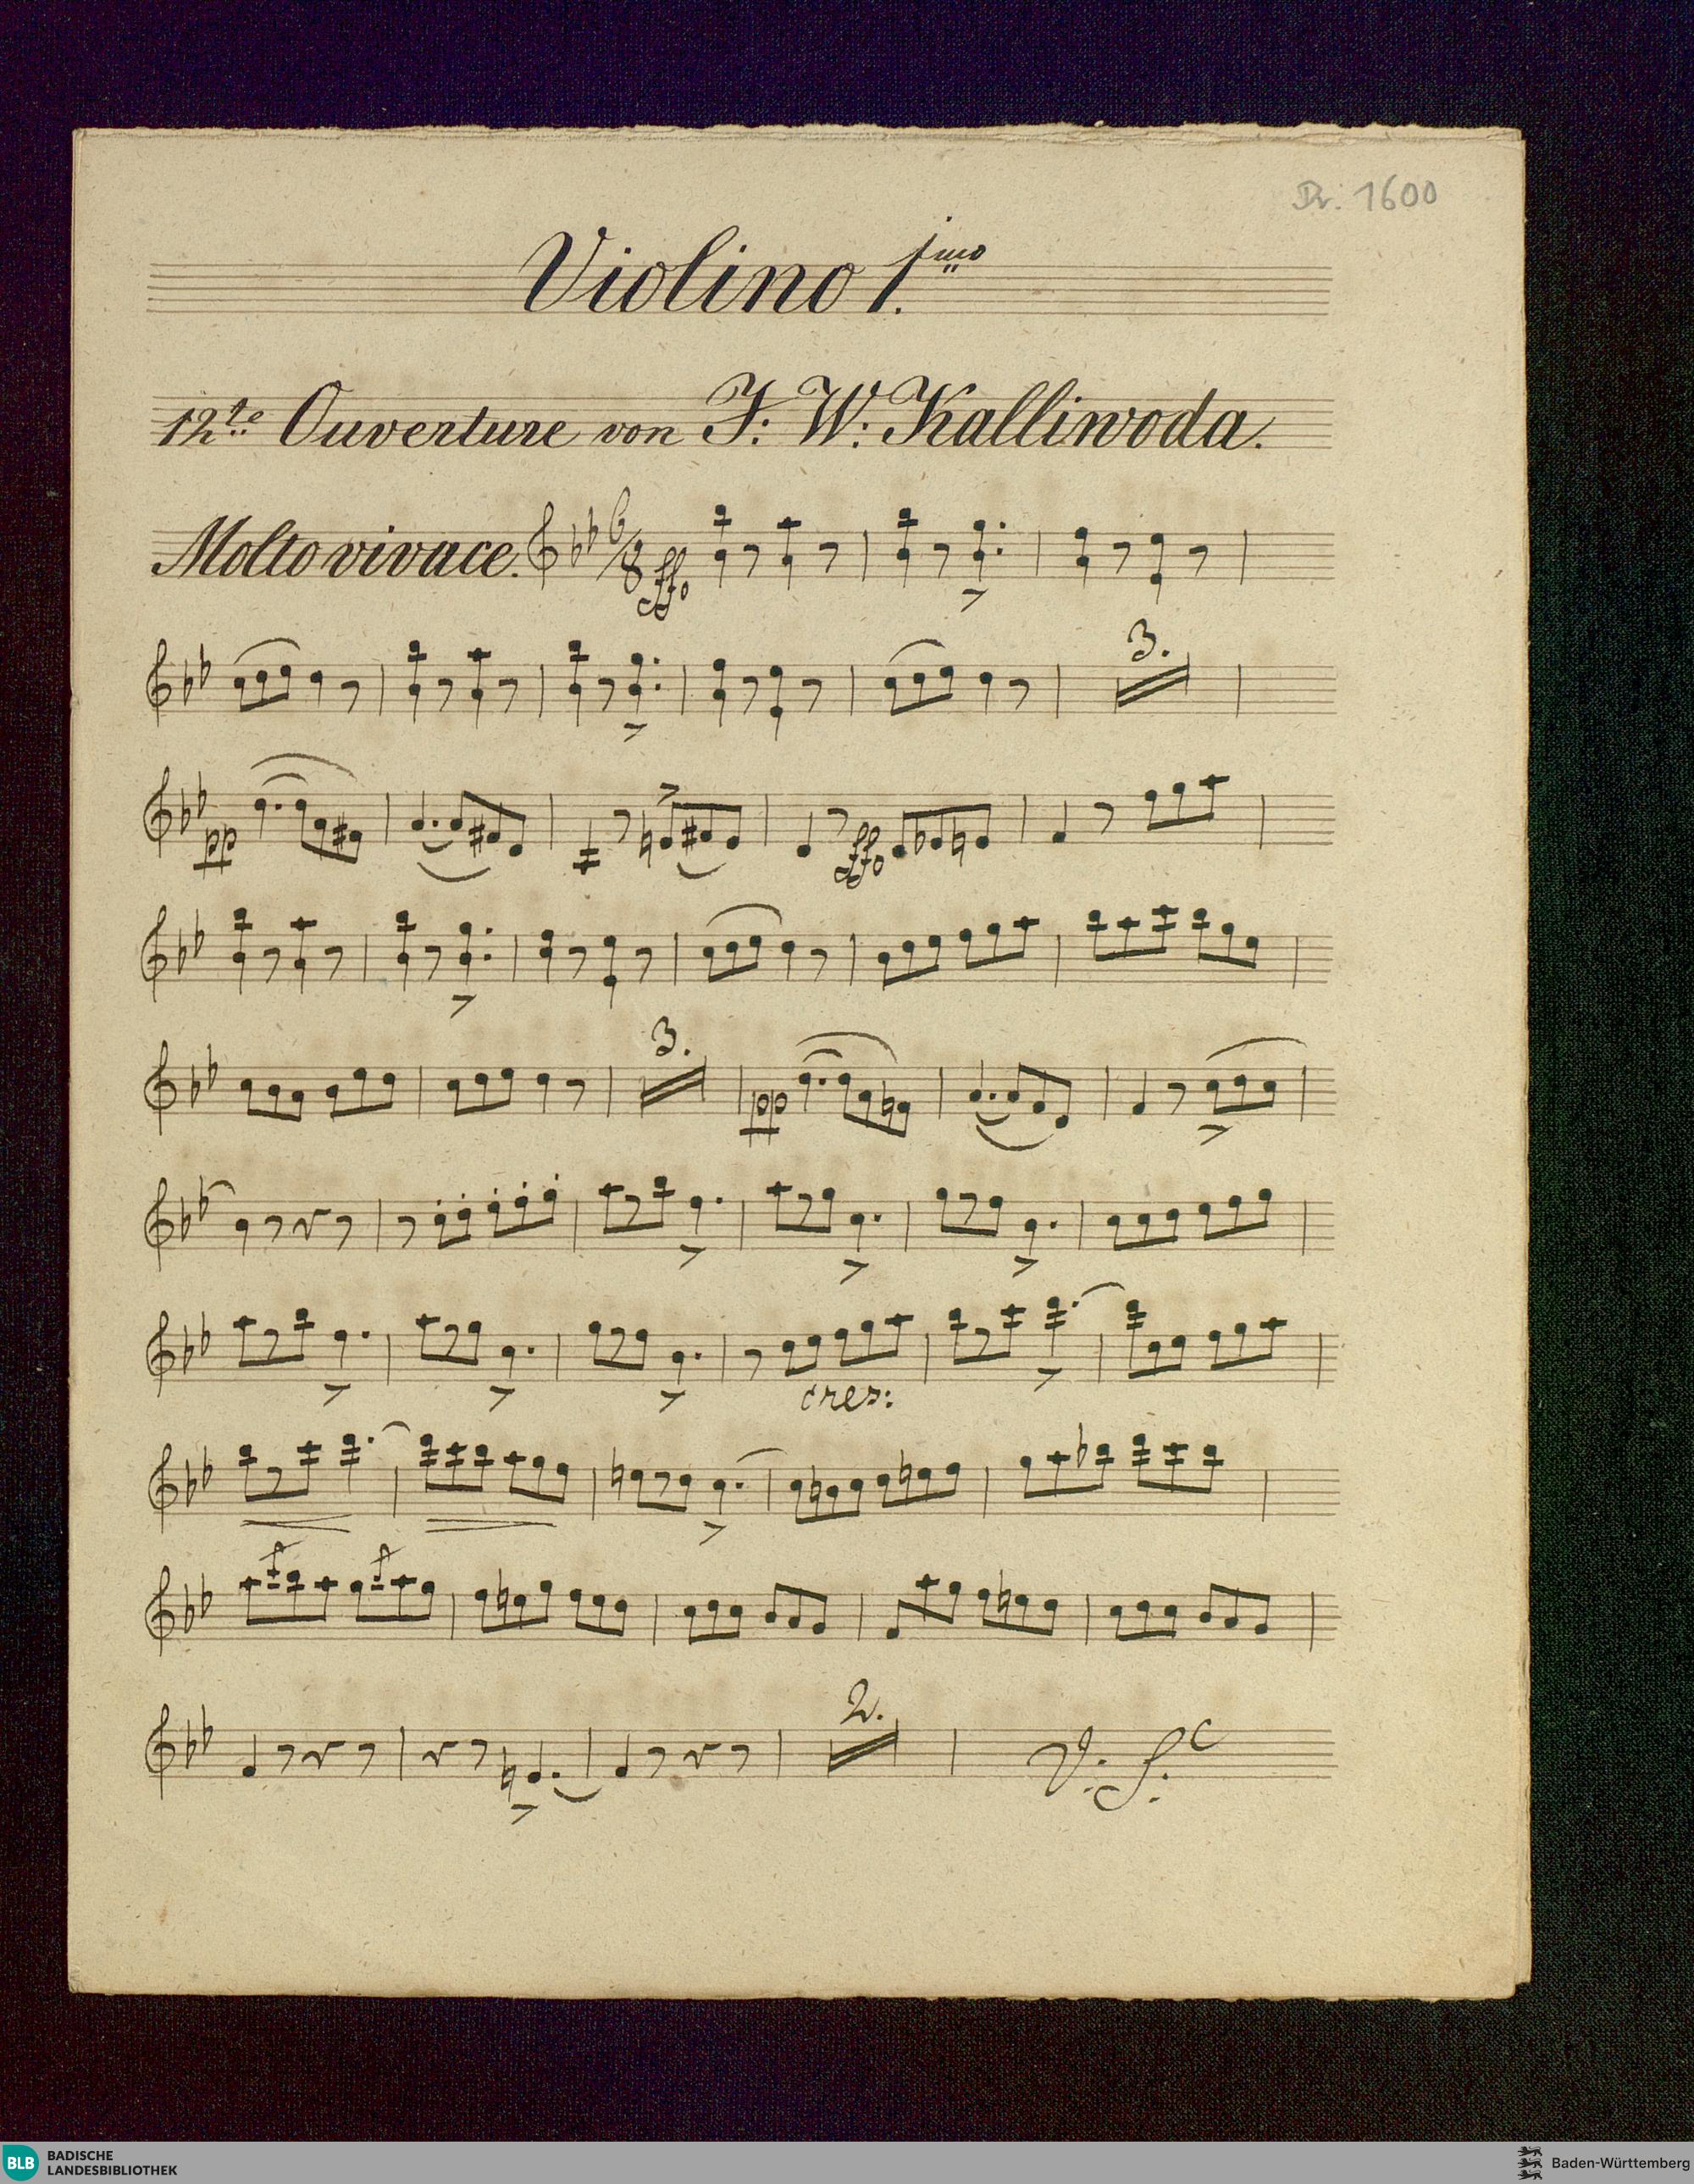 Dr. 1600
Violino 1.mo
12te Ouverture von J: W: Kalliwoda.
Molto vivace. 6/8 ffo
3.
pp ffo
3.
pp
cres:
2.
V. S.
BLB BADISCHE LANDESBIBLIOTHEK
Baden-Württemberg